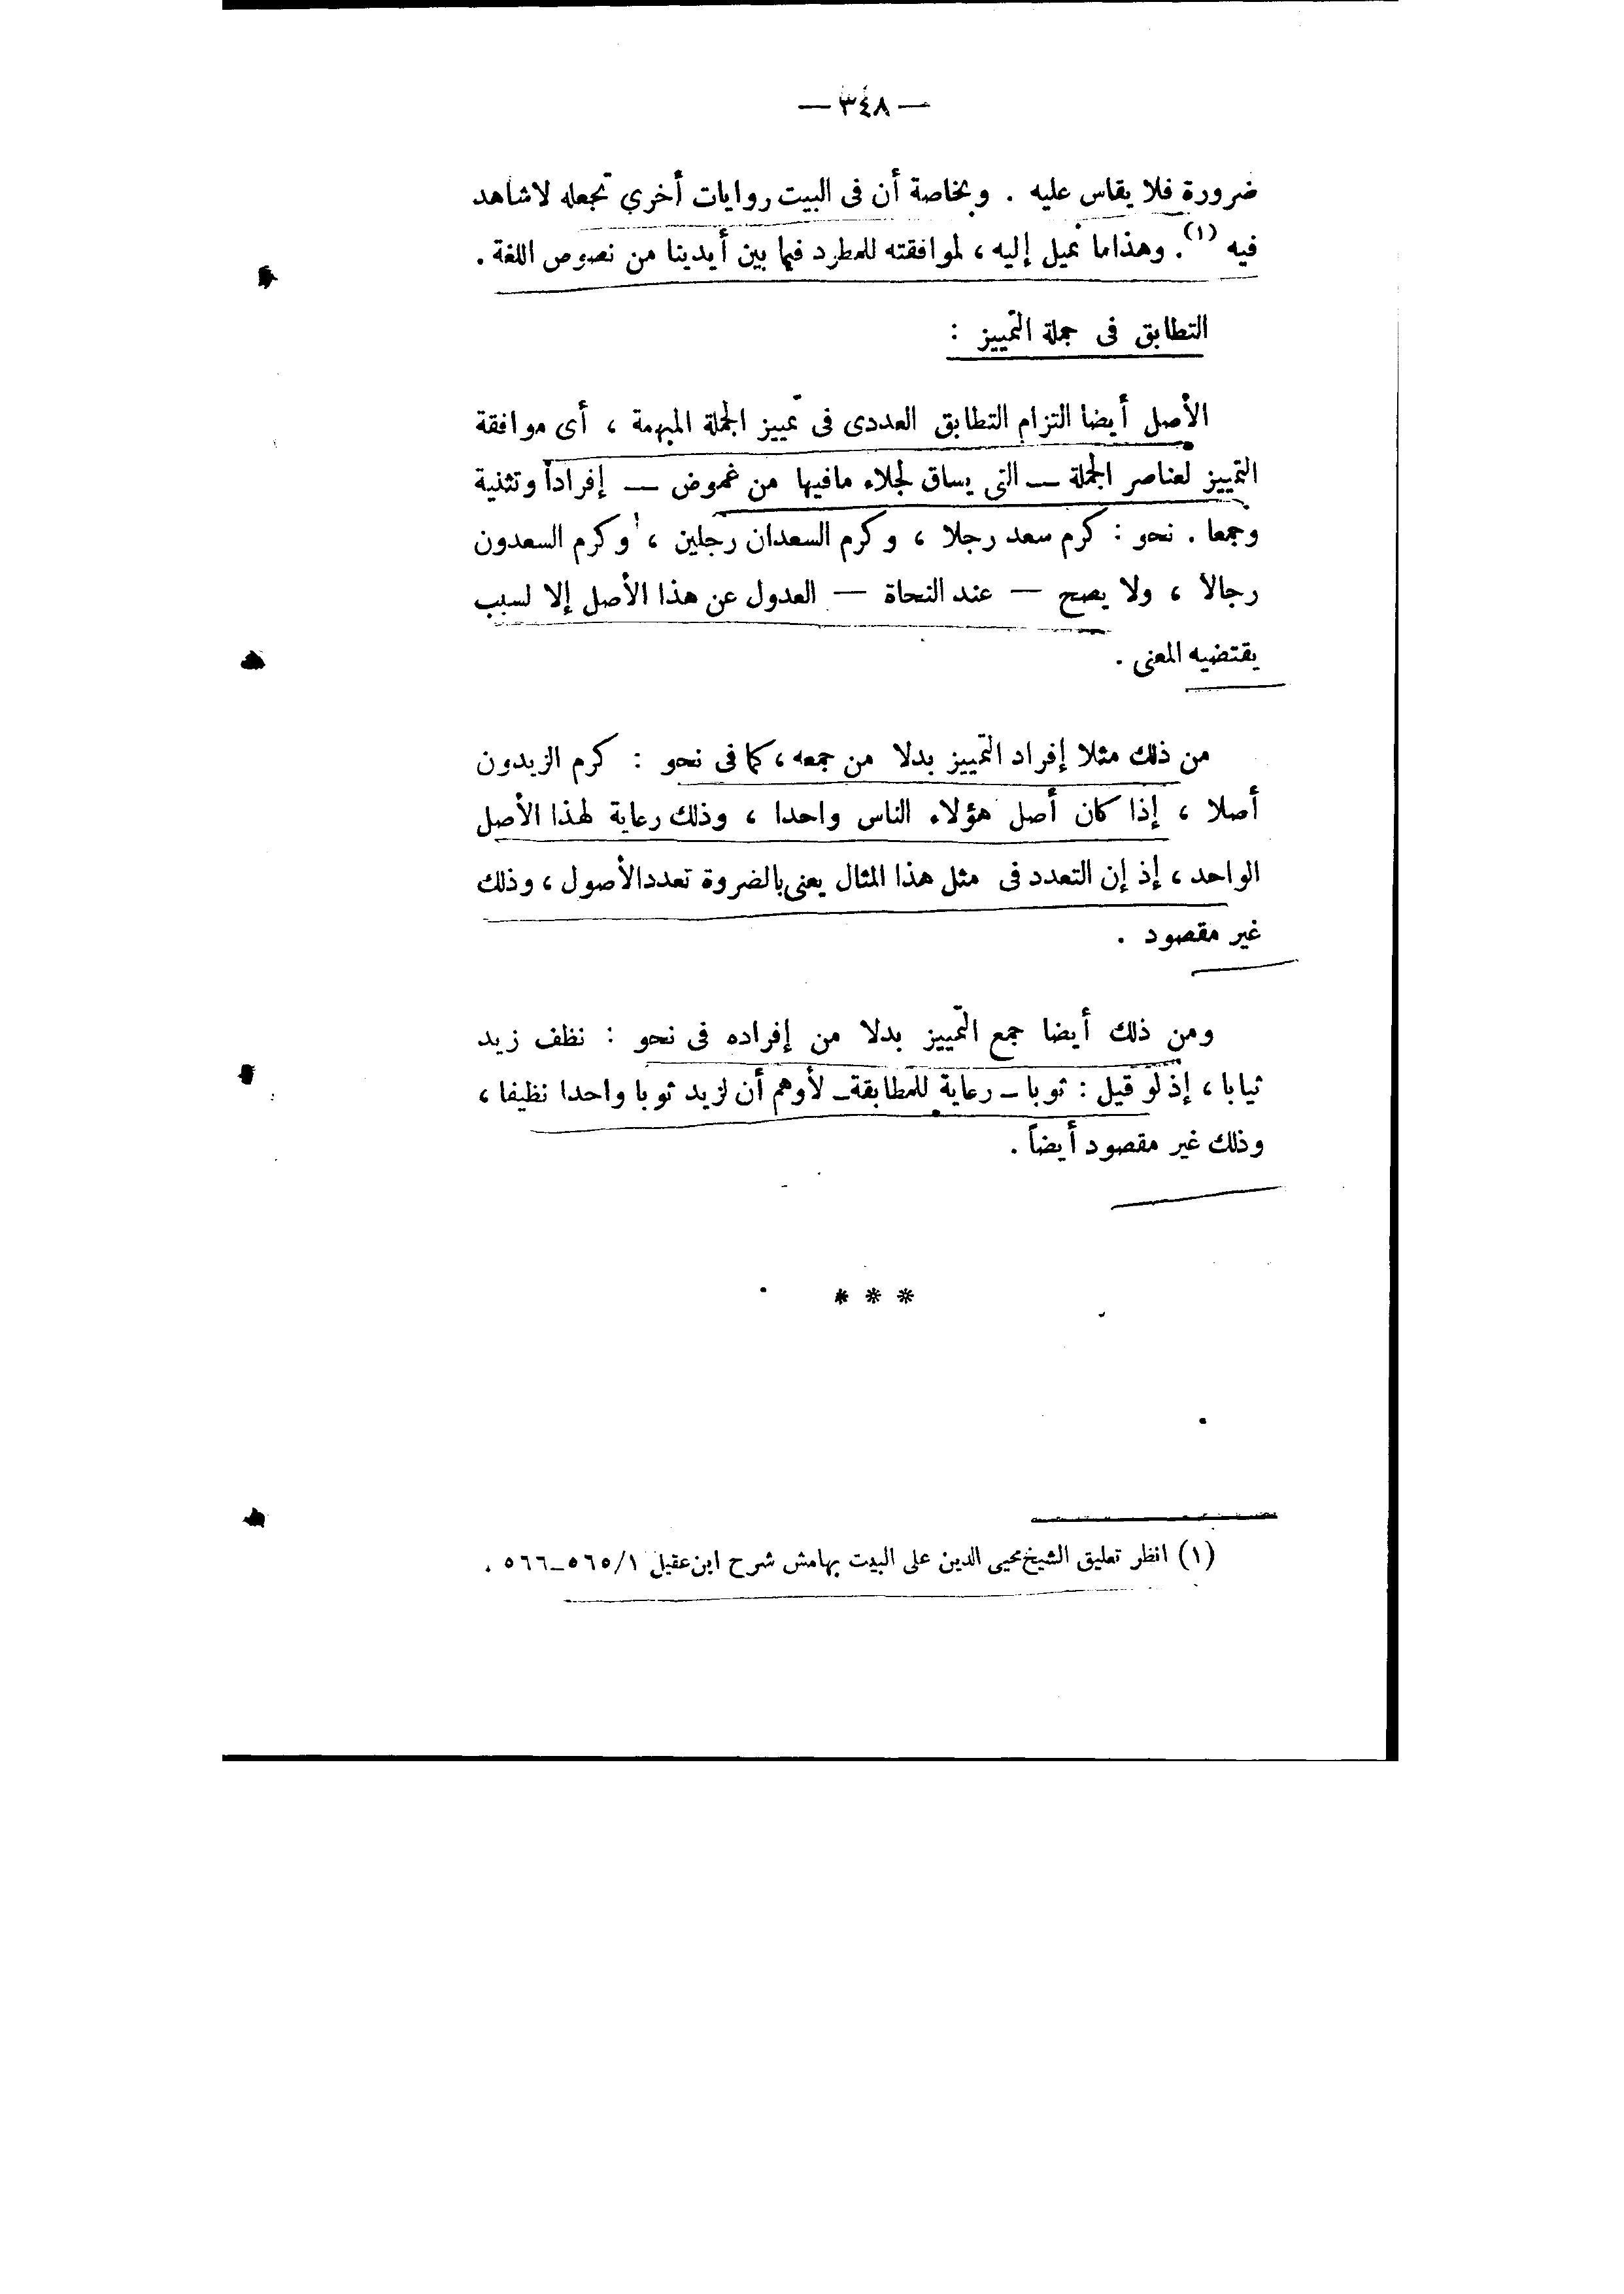 — ٣٤٨ —
ضرورة فلا يقاس عليه . وبخاصة أن فى البيت روايات أخرى تجعله لا شاهد
فيه (١) . وهذا ما نميل إليه ، لموافقته للمطرد فيما بين أيدينا من نصوص اللغة .
التطابق فى جملة التمييز :
الأصل أيضا التزام التطابق العددى فى تمييز الجملة المبهمة ، أى موافقة
التمييز لعناصر الجملة — التى يساق لجلاء مافيها من غموض — إفراداً وتثنية
وجمعا . نحو : كرم سعد رجلا ، وكرم السعدان رجلين ، وكرم السعدون
رجالا ، ولا يصح — عند النحاة — العدول عن هذا الأصل إلا لسبب
يقتضيه المعنى .
من ذلك مثلا إفراد التمييز بدلا من جمعه ، كما فى نحو : كرم الزيدون
أصلا ، إذا كان أصل هؤلاء الناس واحدا ، وذلك رعاية لهذا الأصل
الواحد ، إذ إن التعدد فى مثل هذا المثال يعنى بالضروة تعدد الأصول ، وذلك
غير مقصود .
ومن ذلك أيضا جمع التمييز بدلا من إفراده فى نحو : نظف زيد
ثيابا ، إذ لو قيل : ثوبا — رعاية للمطابقة — لأوهم أن لزيد ثوبا واحدا نظيفا ،
وذلك غير مقصود أيضاً .
* * *
(١) انظر تعليق الشيخ محيى الدين على البيت بهامش شرح ابن عقيل ١/٥٦٥—٥٦٦ .